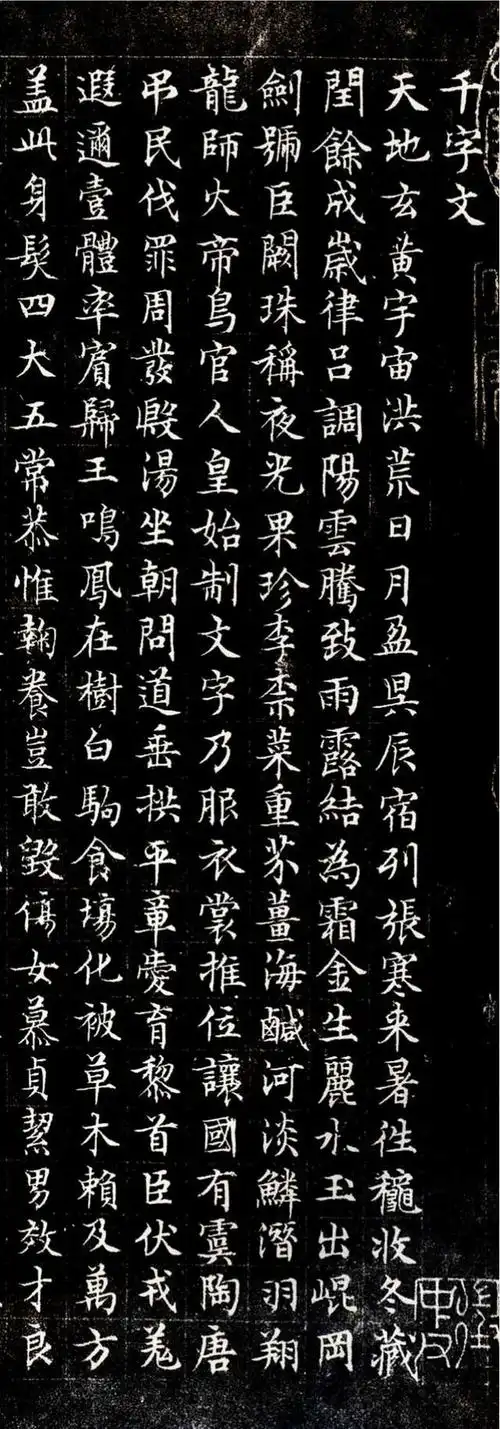 千字文
天地玄黄宇宙洪荒日月盈昃辰宿列張寒来暑往穐收冬藏
閏餘成歲律吕調陽雲騰致雨露結為霜金生麗水玉出崐岡
劍號臣闕珠稱夜光果珍李柰菜重芥薑海鹹河淡鱗潛羽翔
龍師火帝鳥官人皇始制文字乃服衣裳推位讓國有虞陶唐
弔民伐罪周發殷湯坐朝問道垂拱平章愛育黎首臣伏戎羌
遐邇壹體率賓歸王鳴鳳在樹白駒食場化被草木賴及萬方
盖此身髮四大五常恭惟鞠養豈敢毀傷女慕貞絜男效才良